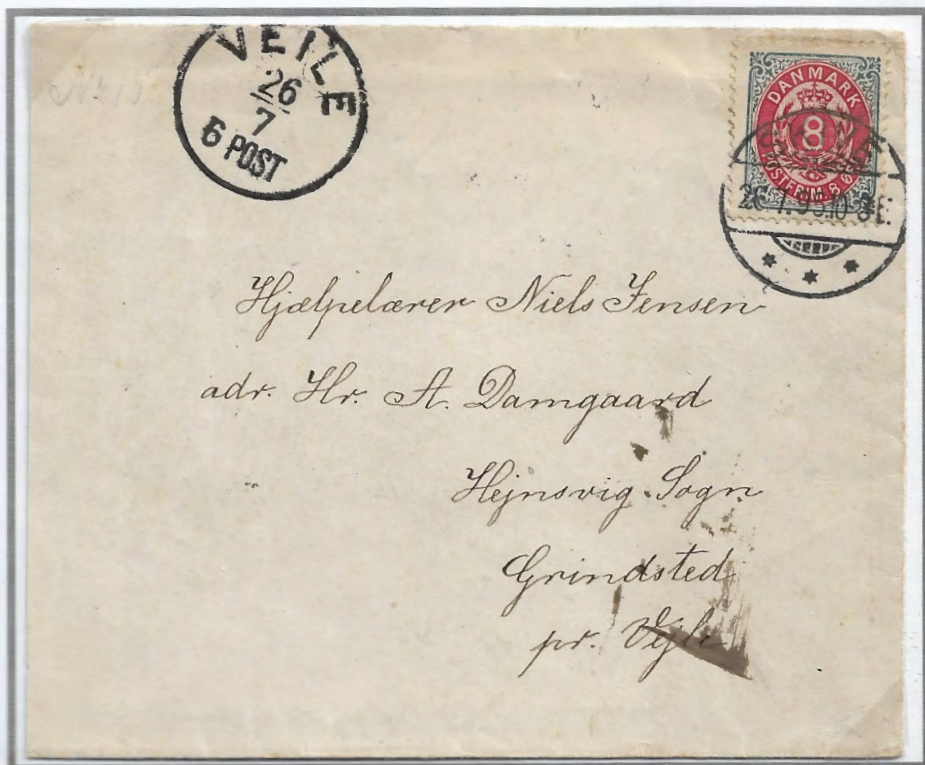 VEILE
26
7
6 POST
DANMARK
8
POSTFRIM. 8 Ø
Hjælpelærer Niels Jensen
adr. Hr. A. Damgaard
Hejnsvig Sogn
Grindsted
pr. Vejle